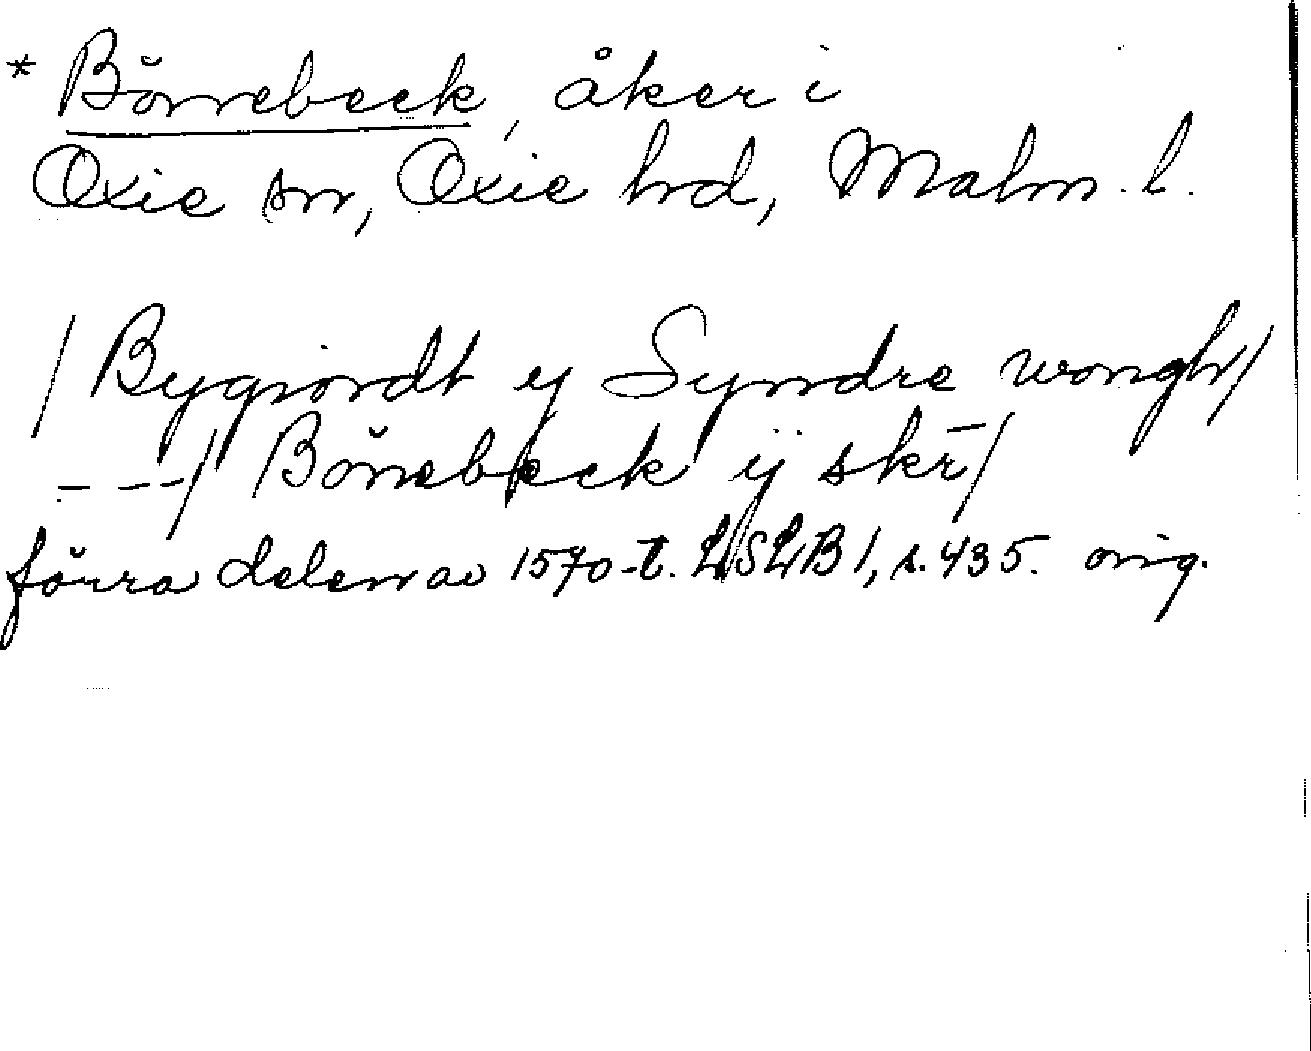 * Bönnebeck, åker i
Oxie sn, Oxie hd, Malm. l.
/ Bygiordt ij Syndre wongh /
– – – / Bönebeck ij skr̄ /
förra delen av 1570-t. LSLB 1, s. 435. orig.